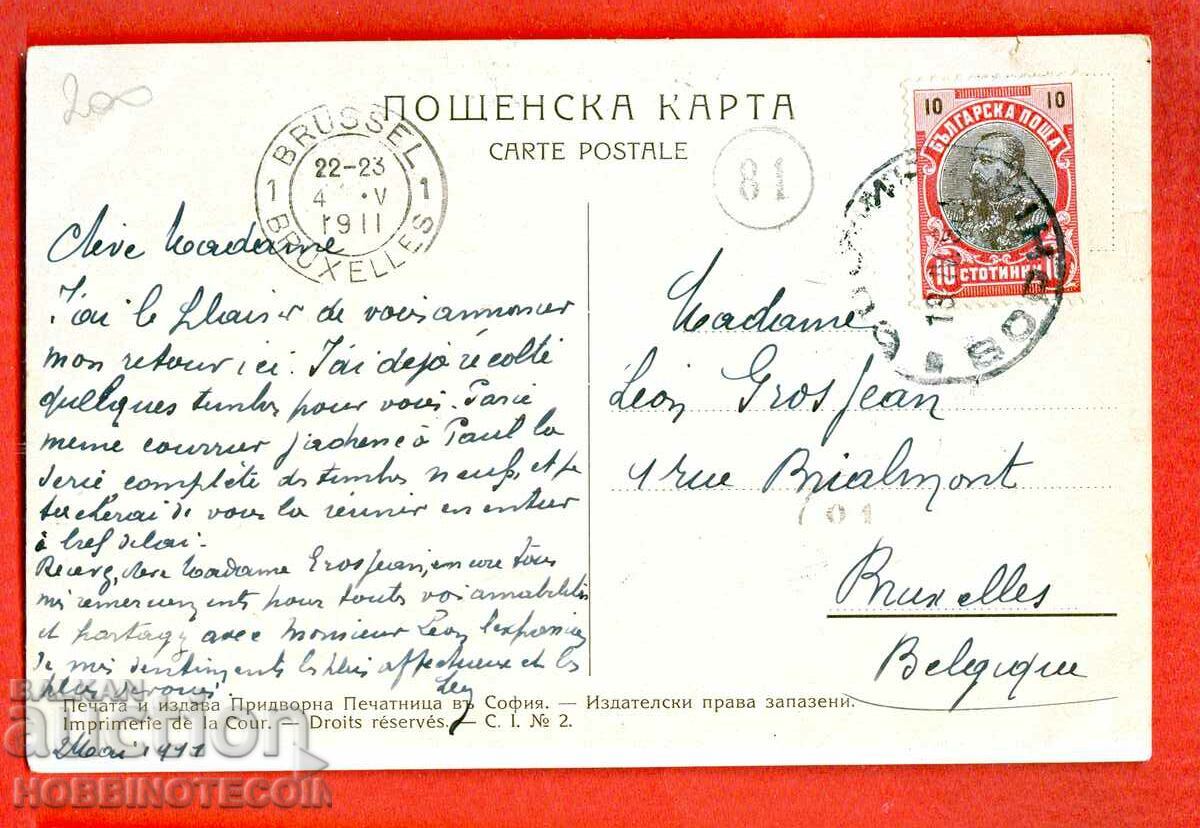 200
ПОЩЕНСКА КАРТА
CARTE POSTALE
BRÜSSEL
1 1
22-23
4 V
1911
BRUXELLES
81
10 10
БЪЛГАРСКА ПОЩА
10 СТОТИНКИ 10
SOPHIA
Chère Madame
J'ai le plaisir de vous annoncer
mon retour ici. J'ai déjà récolté
quelques timbres pour vous. Par le
même courrier j'adresse à Paul la
série complète des timbres neufs et je
tacherai de vous la réunir en entier
à bref delai.
Recevez, chère Madame Grosjean, encore tous
mes remerciements pour toutes vos amabilités
et partagez avec Monsieur Léon l'expression
de mes sentiments les plus affectueux et les
plus dévoués.
2 Mai 1911
Madame
Léon Grosjean
1 rue Brialmont
Bruxelles
Belgique
Печата и издава Придворна Печатница въ София. — Издателски права запазени.
Imprimerie de la Cour. — Droits réservés. — C. I. № 2.
BALKAN
auction
HOBBINOTECOIN